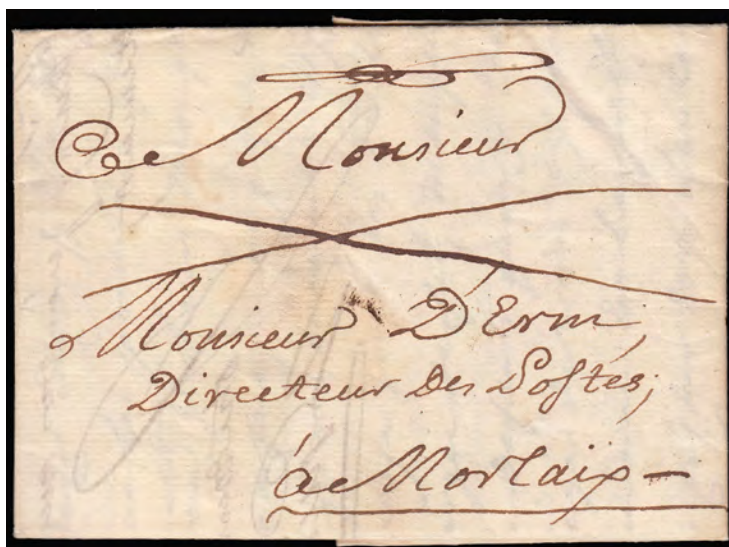 Monsieur
Monsieur D'Erm,
Directeur Des Postes,
à Morlaix